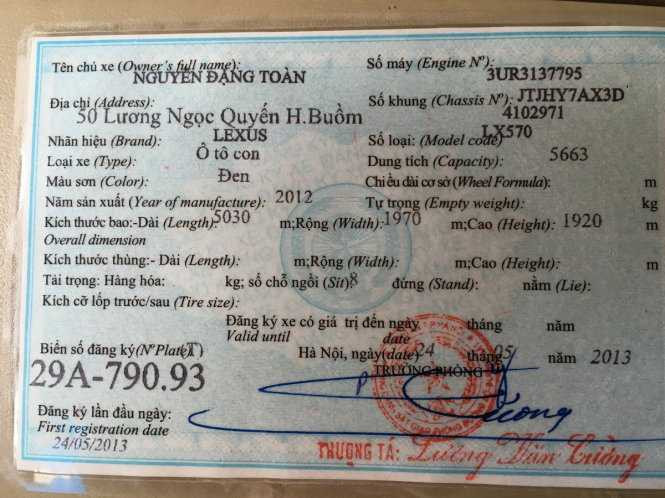 Tên chủ xe (Owner's full name): Số máy (Engine Nº):
NGUYỄN ĐẶNG TOÀN 3UR3137795
Địa chỉ (Address): Số khung (Chassis Nº): JTJHY7AX3D
50 Lương Ngọc Quyến H.Buồm 4102971
Nhãn hiệu (Brand): LEXUS Số loại: (Model code) LX570
Loại xe (Type): Ô tô con Dung tích (Capacity): 5663
Màu sơn (Color): Đen Chiều dài cơ sở (Wheel Formula): m
Năm sản xuất (Year of manufacture): 2012 Tự trọng (Empty weight): kg
Kích thước bao:-Dài (Length): 5030 m;Rộng (Width): 1970 m;Cao (Height): 1920 m
Overall dimension
Kích thước thùng:- Dài (Length): m;Rộng (Width): m;Cao (Height): m
Tải trọng: Hàng hóa: kg; số chỗ ngồi (Sit): 8 đứng (Stand): nằm (Lie):
Kích cỡ lốp trước/sau (Tire size):
Đăng ký xe có giá trị đến ngày tháng năm
Valid until date
Biển số đăng ký(NºPlate)(T) Hà Nội, ngày(date) 24 tháng 05 năm 2013
29A-790.93 TRƯỞNG PHÒNG
Đăng ký lần đầu ngày:
First registration date
24/05/2013
THƯỢNG TÁ: Lường Văn Cường